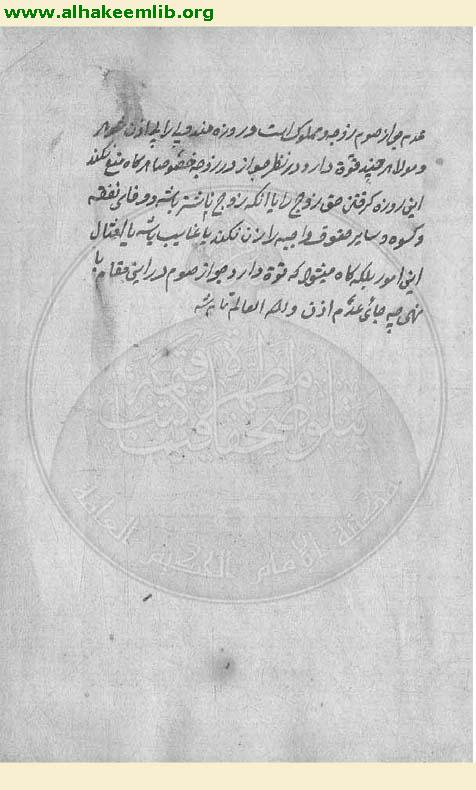 www.alhakeemlib.org
عدم جواز صوم زوجه و مملوک است و روزه مندوب را بی اذن شوهر
و مولا هر چند قوة دارد در نظر جواز در زوجه خصوصا هرگاه منع نکند
این روزه گرفتن حق زوج را یا انکه زوج ناشز باشد و وفای نفقه
و کسوه و سایر حقوق واجبه را بزن نکند یا غایب باشد یا امثال
این امور بلکه گاه میشود که قوة دارد جواز صوم در این مقام با
نهی چه جای عدم اذن و الله العالم
مکتبة الإمام الحکیم العامة